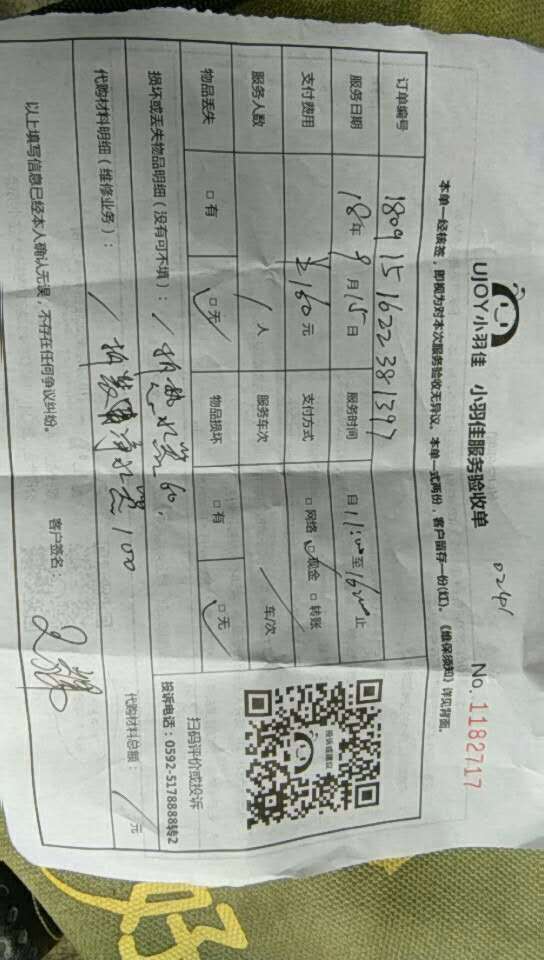 02401
UJOY小羽佳 小羽佳服务验收单 No. 1182717
本单一经核签，即视为对本次服务验收无异议。本单一式两份，客户留存一份(红)。《维保须知》详见背面。
订单编号 1809151622381397
服务日期 18年9月15日 服务时间 自11:00至16:00止
支付费用 ¥160元 支付方式 □网络 □现金 □转账
服务人数 / 人 服务车次 / 车/次
物品丢失 □有 □无 物品损坏 □有 □无
损坏或丢失物品明细（没有可不填）： / 拆 水 60,
代购材料明细（维修业务）： / 拆装 净水器 100
投诉或建议
扫码评价或投诉
投诉电话：0592-5178888转2
代购材料总额： / 元
以上填写信息已经本人确认无误，不存在任何争议纠纷。 客户签名：